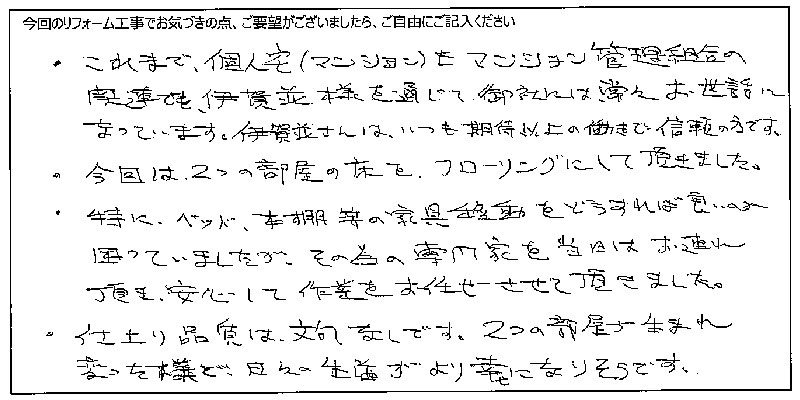 今回のリフォーム工事でお気づきの点、ご要望がございましたら、ご自由にご記入ください
・これまで、個人宅(マンション)とマンション管理組合の
関連でも、伊賀並様を通じて、御社には常々お世話に
なっています。伊賀並さんは、いつも期待以上の働きで信頼の方です。
・今回は、2つの部屋の床を、フローリングにして頂きました。
・特に、ベッド、本棚等の家具移動をどうすれば良いのか
困っていましたが、その為の専門家を当日はお連れ
頂き、安心して作業をお任せさせて頂きました。
・仕上り品質は、文句なしです。2つの部屋が生まれ
変った様で、日々の生活がより幸せになりそうです。